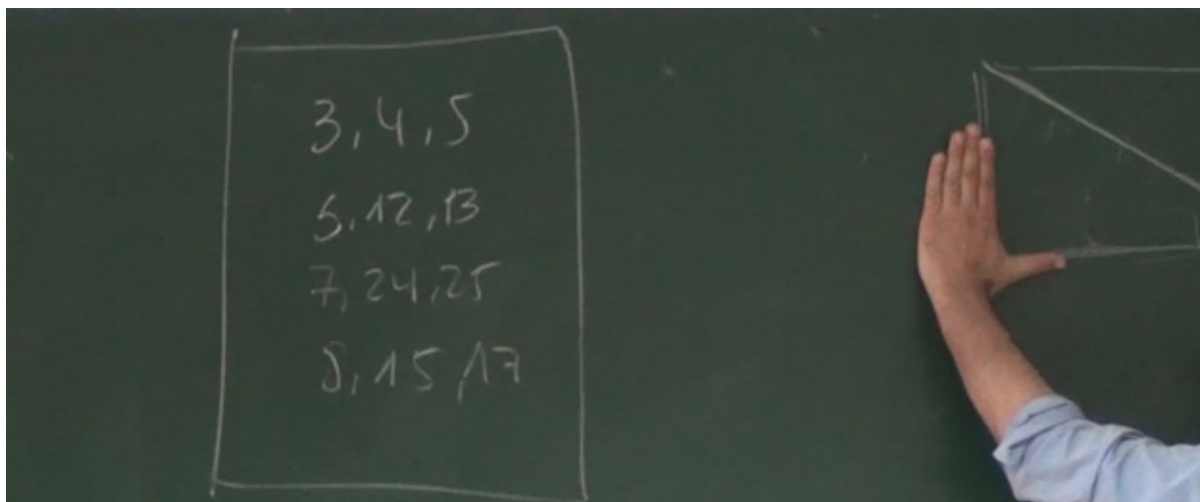 3, 4, 5
5, 12, 13
7, 24, 25
8, 15, 17